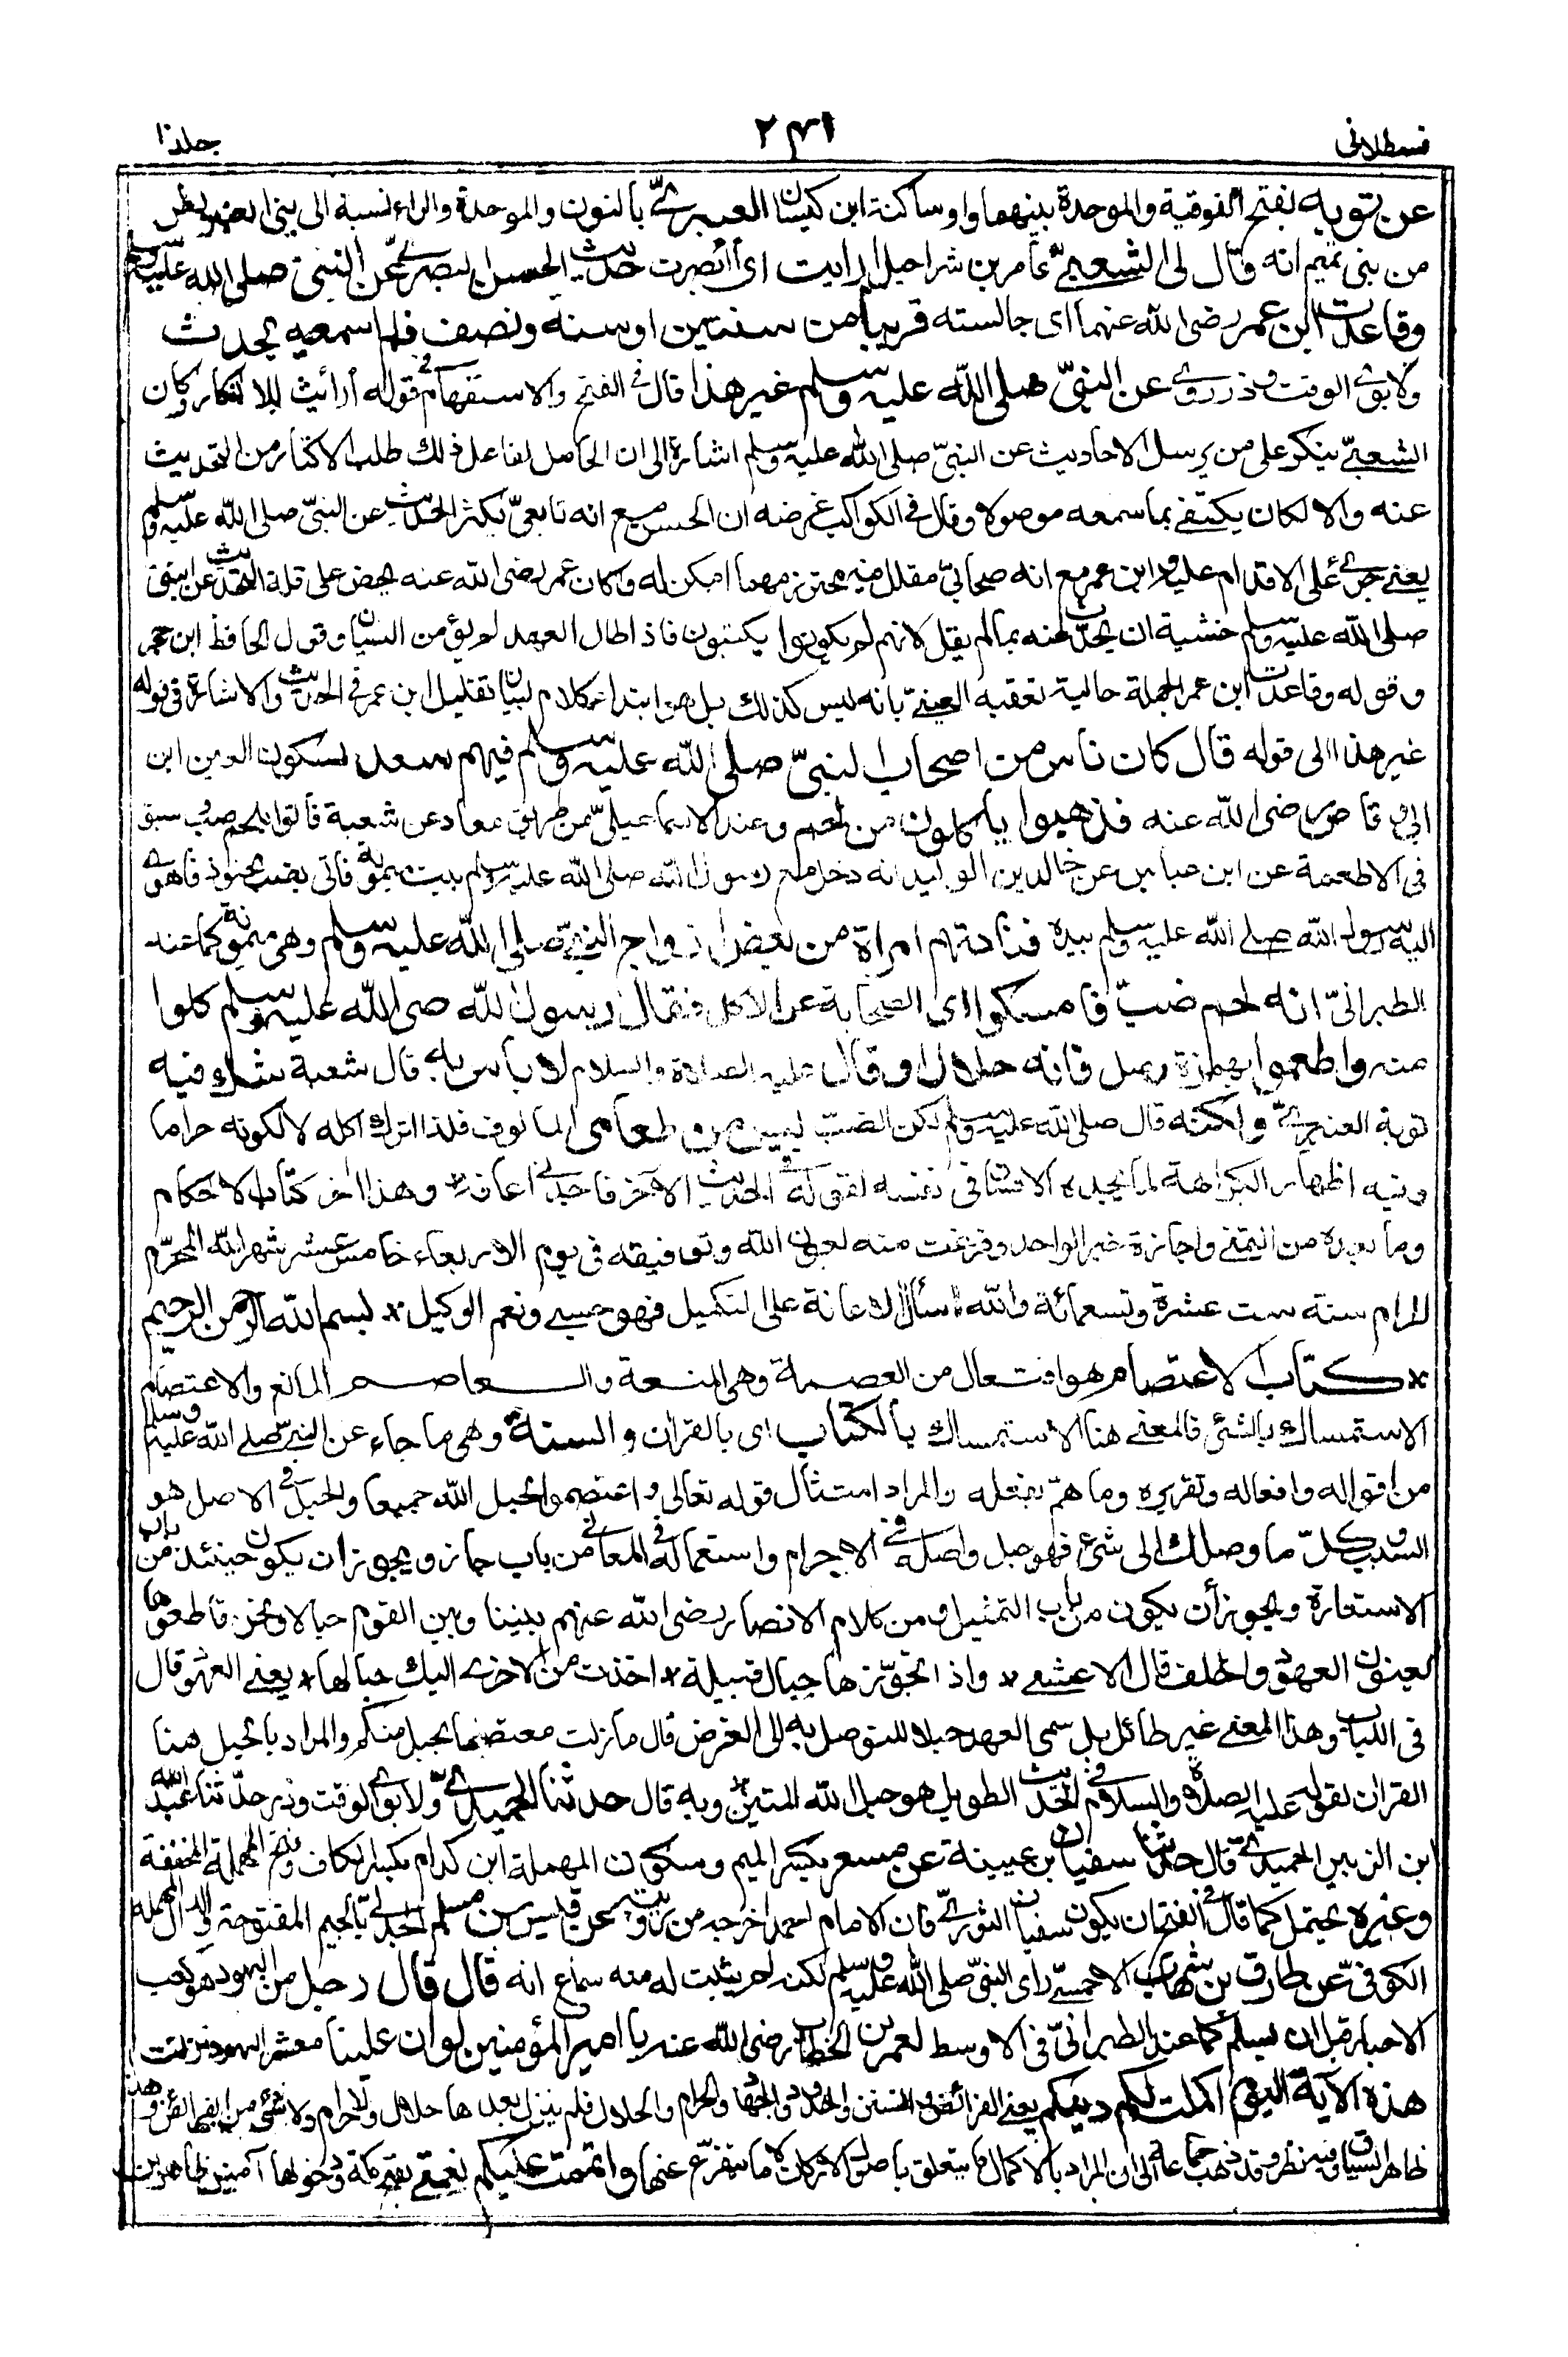 قسطلانی ٢٤١ جلد١٠
عن توبة بفتح الفوقية والموحدة بينهما واو ساكنة ابن كيسان العنبریّ بالنون والموحدة والراء نسبة الى بنی العنبر بطن
من بنی تميم انه قال لی الشعبیّ عامر بن شراحيل ارايت ای أأبصرت حديث الحسن البصریّ عن النبیّ صلى الله عليه وسلم
وقاعدت ابن عمر رضی الله عنهما ای جالسته قريبا من سنتين او سنة ونصف فلم اسمعه يحدث
ولابی الوقت وذر روی عن النبیّ صلى الله عليه وسلم غير هذا قال فی الفتح والاستفهام فی قوله أرأيت للانكار وكان
الشعبیّ ينكر على من يرسل الاحاديث عن النبیّ صلى الله عليه وسلم اشارة الى ان الحامل لفاعل ذلك طلب الاكثار من التحديث
عنه والا لكان يكتفی بما سمعه موصولا وقال فی الكواكب غرضه ان الحسن مع انه تابعیّ يكثر الحديث عن النبیّ صلى الله عليه وسلم
يعنی جریّ على الاقدام عليه وابن عمر مع انه صحابیّ مقلل فيه محترز مهما امكن له وكان عمر رضی الله عنه يحض على قلة التحديث عن النبی
صلى الله عليه وسلم خشية ان يحدّث عنه بما لم يقل لانهم لم يكونوا يكتبون فاذا طال العهد لم يؤمن النسيان وقول الحافظ ابن حجر
وقوله وقاعدت ابن عمر الجملة حالية تعقبه العينی بانه ليس كذلك بل هو ابتداء كلام لبيان تقليل ابن عمر فی الحديث والاشارة فی قوله
غير هذا الى قوله قال كان ناس من اصحاب النبیّ صلى الله عليه وسلم فيهم سعد بسكون العين ابن
ابی وقاص رضی الله عنه فذهبوا ياكلون من لحم وعند الاسماعيلیّ من طريق معاذ عن شعبة فاتوا بلحم ضب وسبق
فی الاطعمة عن ابن عباس عن خالد بن الوليد انه دخل مع رسول الله صلى الله عليه وسلم بيت ميمونة فاتی بضب محنوذ فاهوی
اليه رسول الله صلى الله عليه وسلم بيده فنادتهم امراة من بعض ازواج النبیّ صلى الله عليه وسلم وهی ميمونة كما عند
الطبرانیّ انه لحم ضبّ فامسكوا ای الصحابة عن الاكل فقال رسول الله صلى الله عليه وسلم كلوا
منه واطعموا بهمزة وصل فانه حلال او قال عليه الصلاة والسلام لا باس به قال شعبة شك فيه
توبة العنبریّ ولكنه قال صلى الله عليه وسلم لكن الضبّ ليس من طعامی المالوف فلذا اترك اكله لا لكونه حراما
وفيه اظهار الكراهة لما يجده الانسان فی نفسه لقوله فی الحديث الآخر فاجدنی اعافه وهذا اٰخر كتاب الاحكام
وما بعده من التمنی واجازة خبر الواحد وفرغت منه بعون الله وتوفيقه فی يوم الاربعاء خامس عشر شهر الله المحرّم
الحرام سنة ست عشرة وتسعمائة والله اسأل الاعانة على التكميل فهو حسبی ونعم الوكيل * بسم الله الرحمن الرحيم
* كتاب الاعتصام هو افتعال من العصمة وهی المنعة والعاصم المانع والاعتصام
الاستمساك بالشئ فالمعنی هنا الاستمساك بالكتاب ای بالقراٰن والسنة وهی ما جاء عن النبیّ صلى الله عليه وسلم
من اقواله وافعاله وتقريره وما همّ بفعله والمراد امتثال قوله تعالى واعتصموا بحبل الله جميعا والحبل فی الاصل هو
السبب وكلّ ما وصلك الى شئ فهو حبل واصله فی الاجرام واستعماله فی المعانی من باب المجاز ويجوز ان يكون حينئذ من باب
الاستعارة ويجوز أن يكون من باب التمثيل ومن كلام الانصار رضی الله عنهم بيننا وبين القوم حبالا ونحن قاطعوها
يعنون العهود والحلف قال الاعشی * واذا تجوّزها حبال قبيلة * اخذت من الاخرى اليك حبالها * يعنی العهود قال
فی اللباب وهذا المعنی غير طائل بل سمی العهد حبلا للتوصل به الى الغرض قال ما زلت معتصما بحبل منكم والمراد بالحبل هنا
القراٰن لقوله عليه الصلاة والسلام فی الحديث الطويل هو حبل الله المتين * وبه قال حدثنا الحميدیّ ولابی الوقت وذر حدّثنا عبد الله
ابن الزبير الحميدیّ قال حدثنا سفيان بن عيينة عن مسعر بكسر الميم وسكون المهملة ابن كدام بكسر الكاف وفتح المهملة المخففة
وغيره يحتمل كما قال فی الفتح ان يكون سفيان الثوریّ فان الامام احمد اخرجه من روايته عن قيس بن مسلم الجدلیّ بالجيم المفتوحة والدال المهملة
الكوفیّ عن طارق بن شهاب الاحمسیّ رأى النبیّ صلى الله عليه وسلم لكن لم يثبت له منه سماع انه قال قال رجل من اليهود هو كعب
الاحبار قبل ان يسلم كما عند الطبرانیّ فی الاوسط لعمر بن الخطاب رضی الله عنه يا امير المؤمنين لو ان علينا معشر اليهود نزلت
هذه الآية اليوم اكملت لكم دينكم يعنی الفرائض والسنن والحدود والجهاد والحرام والحلال فلم ينزل بعدها حلال ولا حرام ولا شئ من الفرائض وهذا
ظاهر السياق وفيه نظر وقد ذهب جماعة الى ان المراد بالاكمال ما يتعلق باصول الاركان لا ما يتفرّع عنها واتممت عليكم نعمتی بفتح مكة ودخولها آمنين ظاهرين